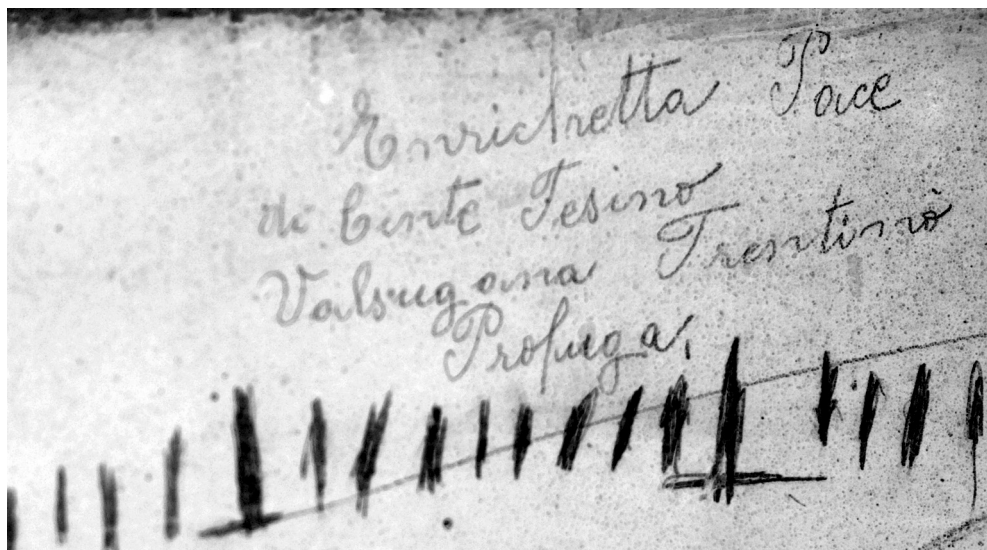 Enrichetta Pace
di Cinte Tesino
Valsugana Trentino
Profuga